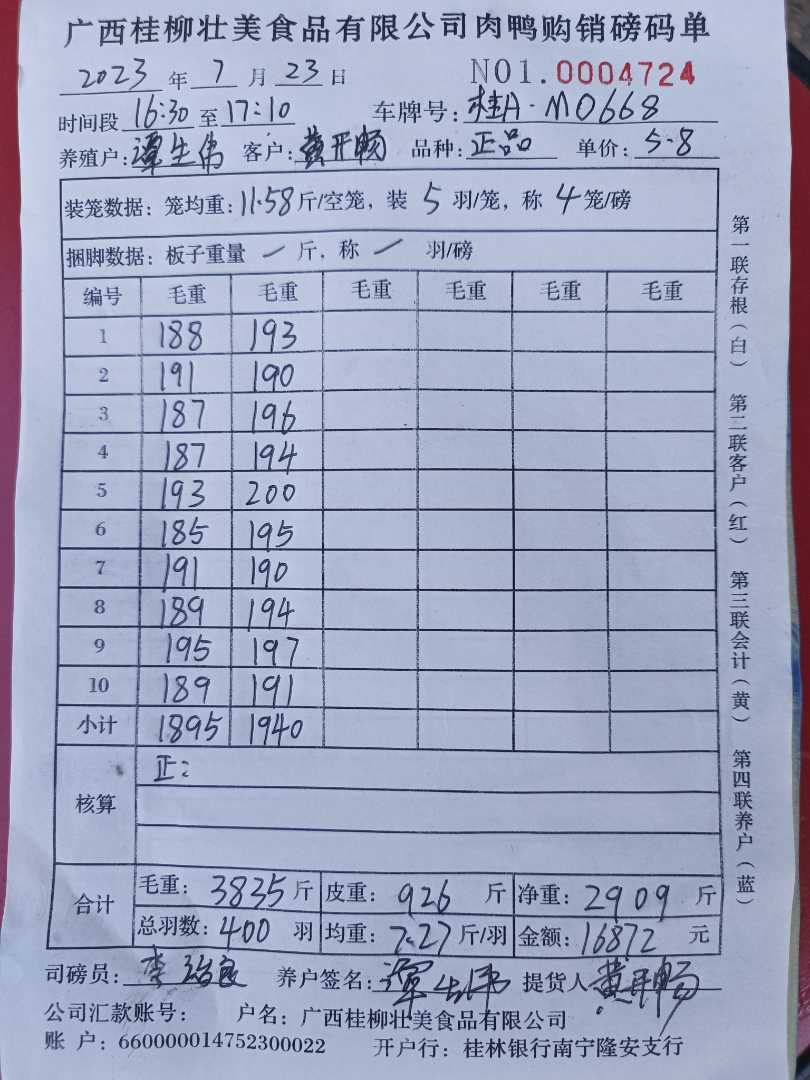 广西桂柳壮美食品有限公司肉鸭购销磅码单
2023 年 7 月 23 日 NO1.0004724
时间段 16:30 至 17:10 车牌号: 桂A·M0668
养殖户: 谭生伟 客户: 黄开畅 品种: 正品 单价: 5.8
装笼数据: 笼均重: 11.58 斤/空笼, 装 5 羽/笼, 称 4 笼/磅
捆脚数据: 板子重量 / 斤, 称 / 羽/磅
编号 毛重 毛重 毛重 毛重 毛重 毛重
1 188 193
2 191 190
3 187 196
4 187 194
5 193 200
6 185 195
7 191 190
8 189 194
9 195 197
10 189 191
小计 1895 1940
核算 正:
合计 毛重: 3835 斤 皮重: 926 斤 净重: 2909 斤
总羽数: 400 羽 均重: 7.27 斤/羽 金额: 16872 元
司磅员: 李 良 养户签名: 谭生伟 提货人 黄开畅
公司汇款账号: 户名: 广西桂柳壮美食品有限公司
账 户: 660000014752300022 开户行: 桂林银行南宁隆安支行
第一联存根(白) 第二联客户(红) 第三联会计(黄) 第四联养户(蓝)